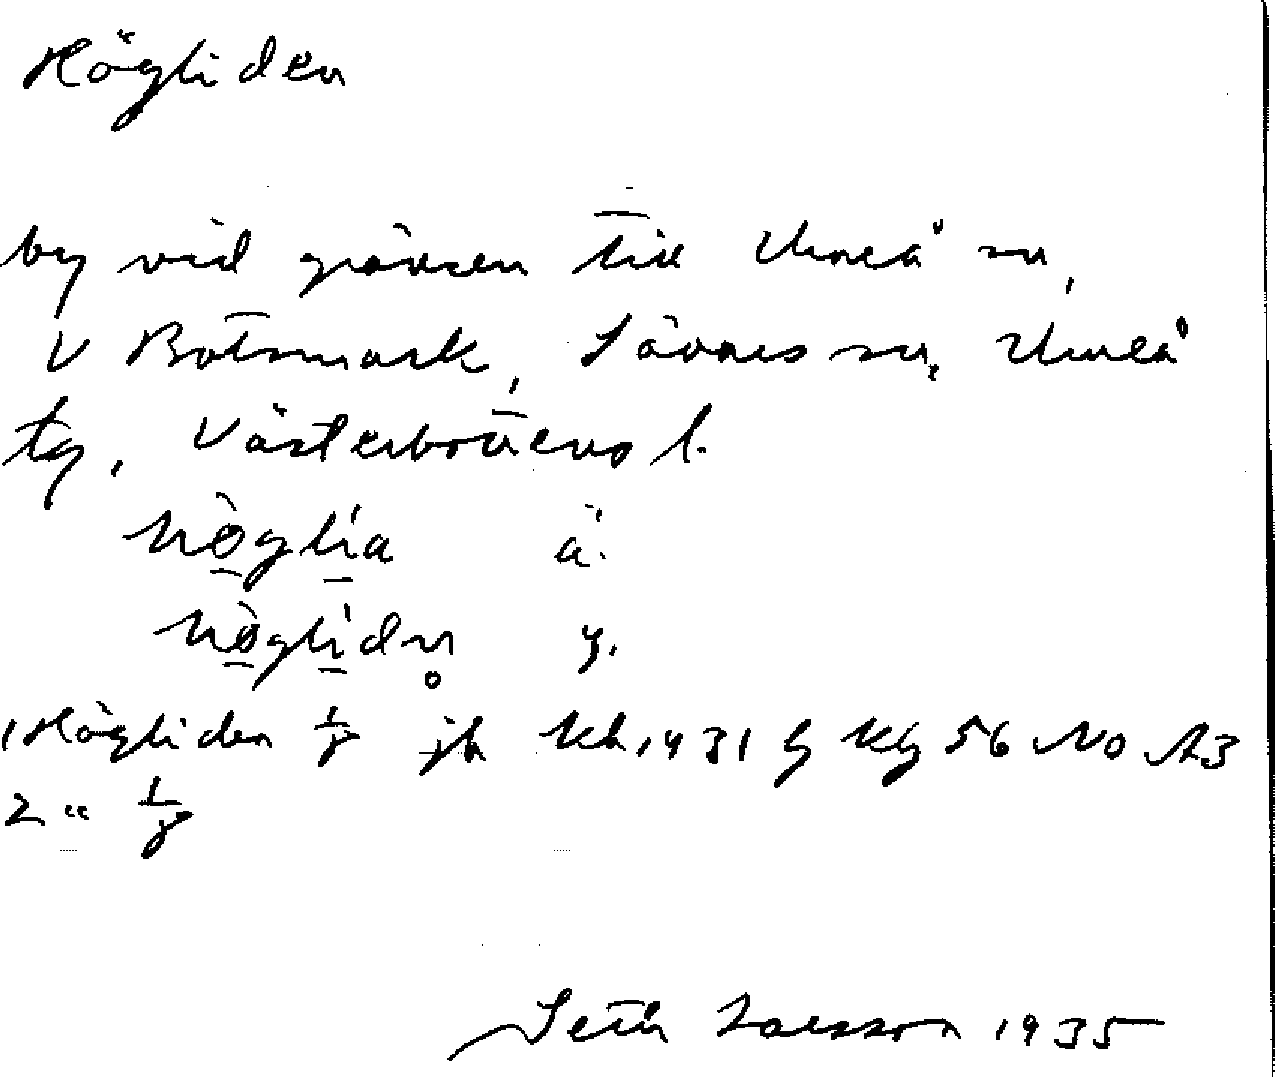 Högliden
by vid gränsen till Umeå sn,
V Botsmark, Sävars sn, Umeå
tg, Västerbottens l.
hø̀glía ä.
hø̀glídn̥ y.
1 Högliden 1/8 jb kb 1931 g kg 56 No A3
2 " 1/8
Seth Larsson 1935